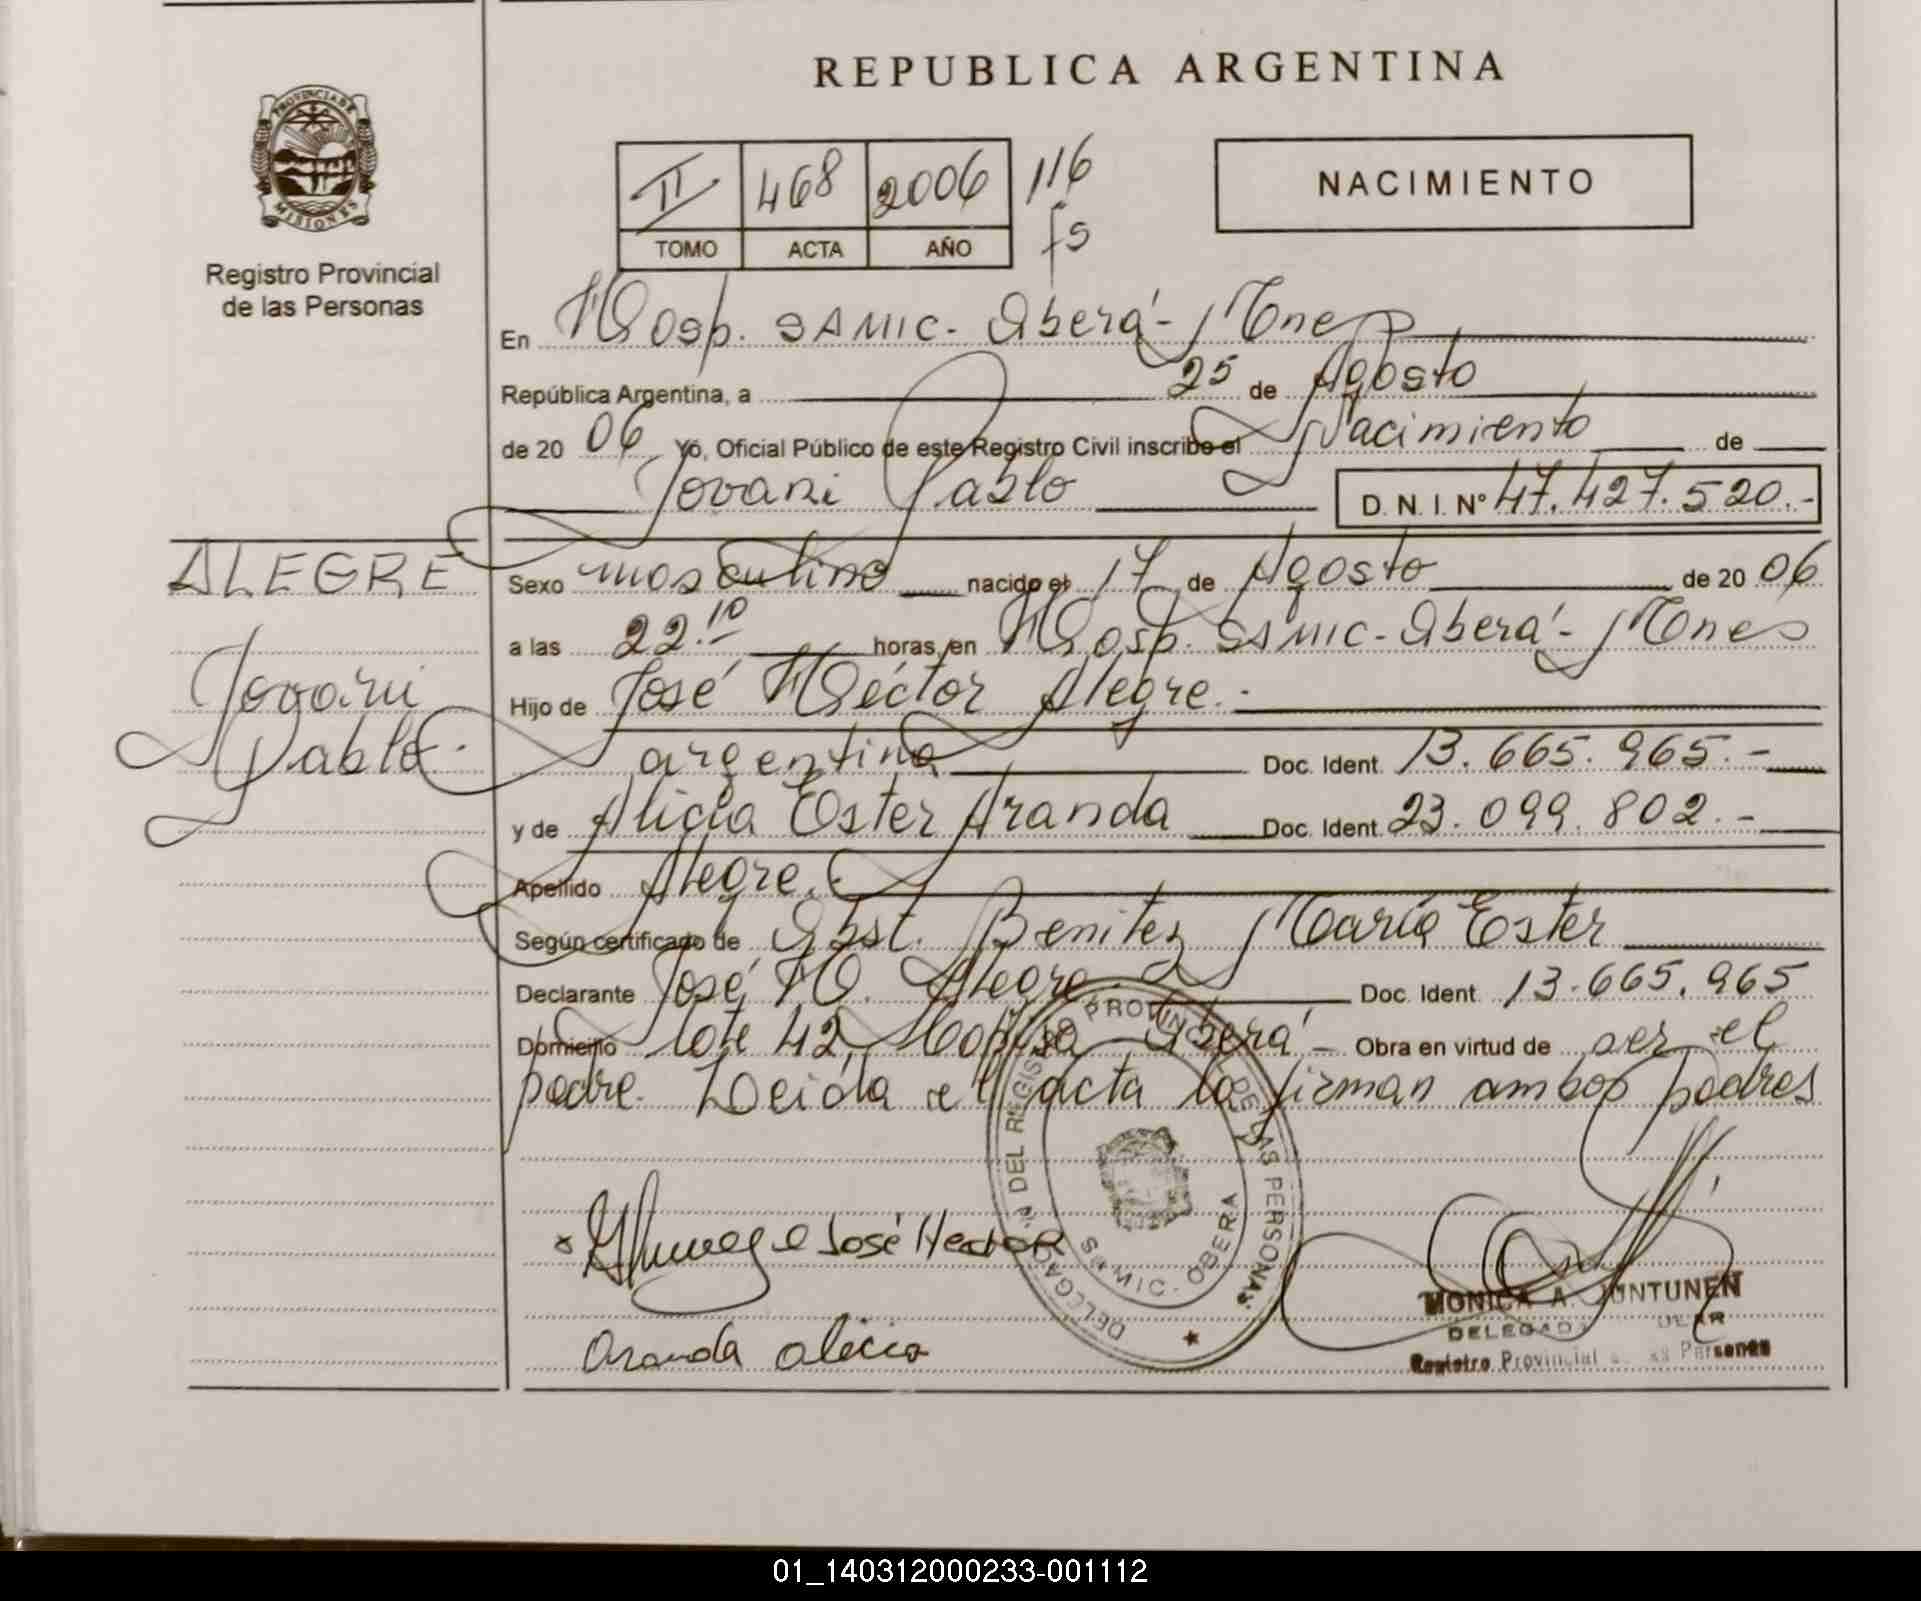 REPUBLICA ARGENTINA
PROVINCIA DE
MISIONES
Registro Provincial
de las Personas
II 468 2006 116
TOMO ACTA AÑO fs
NACIMIENTO
En Hosp. SAMIC - Oberá - Mnes
República Argentina, a 25 de Agosto
de 20 06 Yo, Oficial Público de este Registro Civil inscribo el Nacimiento de
Jovani Pablo D. N. I. Nº 47.427.520.-
ALEGRE
Jovani
Pablo.
Sexo masculino nacido el 17 de Agosto de 20 06
a las 22.10 horas, en Hosp. SAMIC - Oberá - Mnes
Hijo de José Héctor Alegre.-
argentino Doc. Ident. 13.665.965.-
y de Alicia Ester Aranda Doc. Ident. 23.099.802.-
Apellido Alegre.
Según certificado de Obst. Benitez María Ester
Declarante José H. Alegre Doc. Ident. 13.665.965
Domicilio lote 42, Oberá - Obra en virtud de ser el
padre. Leída el acta la firman ambos padres
José Hector
Aranda Alicia
DELEGACIÓN DEL REGISTRO PROVINCIAL DE LAS PERSONAS
SAMIC - OBERA
MONICA A. JUNTUNEN
DELEGADA
Registro Provincial de las Personas
01_140312000233-001112